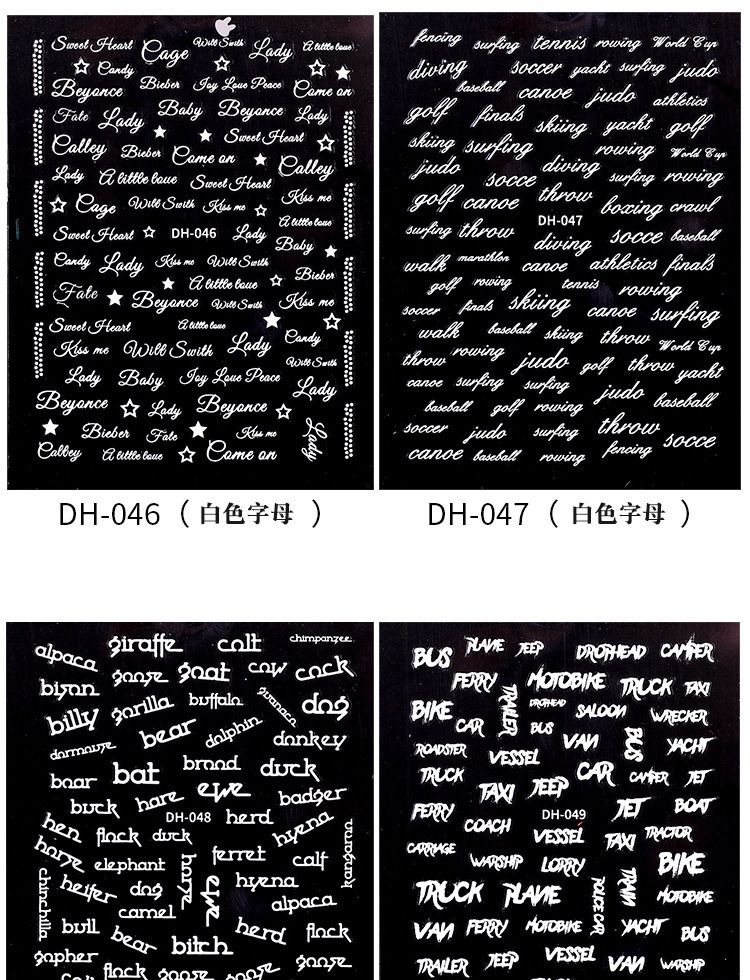 Sweet Heart Cage Will Smith Lady A little love
Candy
Beyonce Bieber Joy Love Peace Come on
Fate Lady Baby Beyonce Lady
Calley Bieber Come on Sweet Heart Calley
Lady A little love Sweet Heart
Cage Will Smith Kiss me Kiss me
A little love
Sweet Heart DH-046 Lady Baby
Candy Lady Kiss me Will Smith
A little love Bieber
Fate Beyonce Will Smith Kiss me
Sweet Heart A little love
Kiss me Will Smith Lady Candy
Will Smith
Lady Baby Joy Love Peace Lady
Beyonce Lady Beyonce
Bieber Fate Kiss me Lady
Calley A little love Come on
DH-046 ( 白色字母 )
fencing surfing tennis rowing World Cup
diving soccer yacht surfing judo
baseball canoe judo athletics
golf finals skiing yacht golf
skiing surfing rowing World Cup
judo socce diving surfing rowing
golf canoe throw boxing crawl
DH-047
surfing throw diving socce baseball
walk marathlon canoe athletics finals
golf rowing tennis rowing
soccer finals skiing canoe surfing
walk baseball skiing throw World Cup
throw rowing judo golf throw yacht
canoe surfing surfing judo baseball
baseball golf rowing
soccer judo surfing throw socce
canoe baseball rowing fencing
DH-047 ( 白色字母 )
alpaca giraffe colt chimpanzee
bison goose goat cow cock
billy gorilla buffalo guanaco dog
dormouse bear dolphin donkey
boar bat brood duck
buck hare ewe badger
hen DH-048 herd hyena
horse flock duck ferret calf kangaroo
elephant horse ewe hyena
chinchilla heifer dog alpaca
camel
bull bear bitch herd flock
gopher flock goose goose goose
BUS PLANE JEEP DROPHEAD CAMPER
FERRY MOTOBIKE TRUCK TAXI
BIKE TRAILER DROPHEAD SALOON WRECKER
CAR BUS VAN BUS YACHT
ROADSTER VESSEL
TRUCK TAXI JEEP CAR CAMPER JET
FERRY DH-049 JET BOAT
COACH VESSEL TAXI TRACTOR
CARRIAGE WARSHIP LORRY BIKE
TRUCK PLANE POLICE CAR TRAIN MOTOBIKE
VAN FERRY MOTOBIKE YACHT BUS
TRAILER JEEP VESSEL VAN WARSHIP